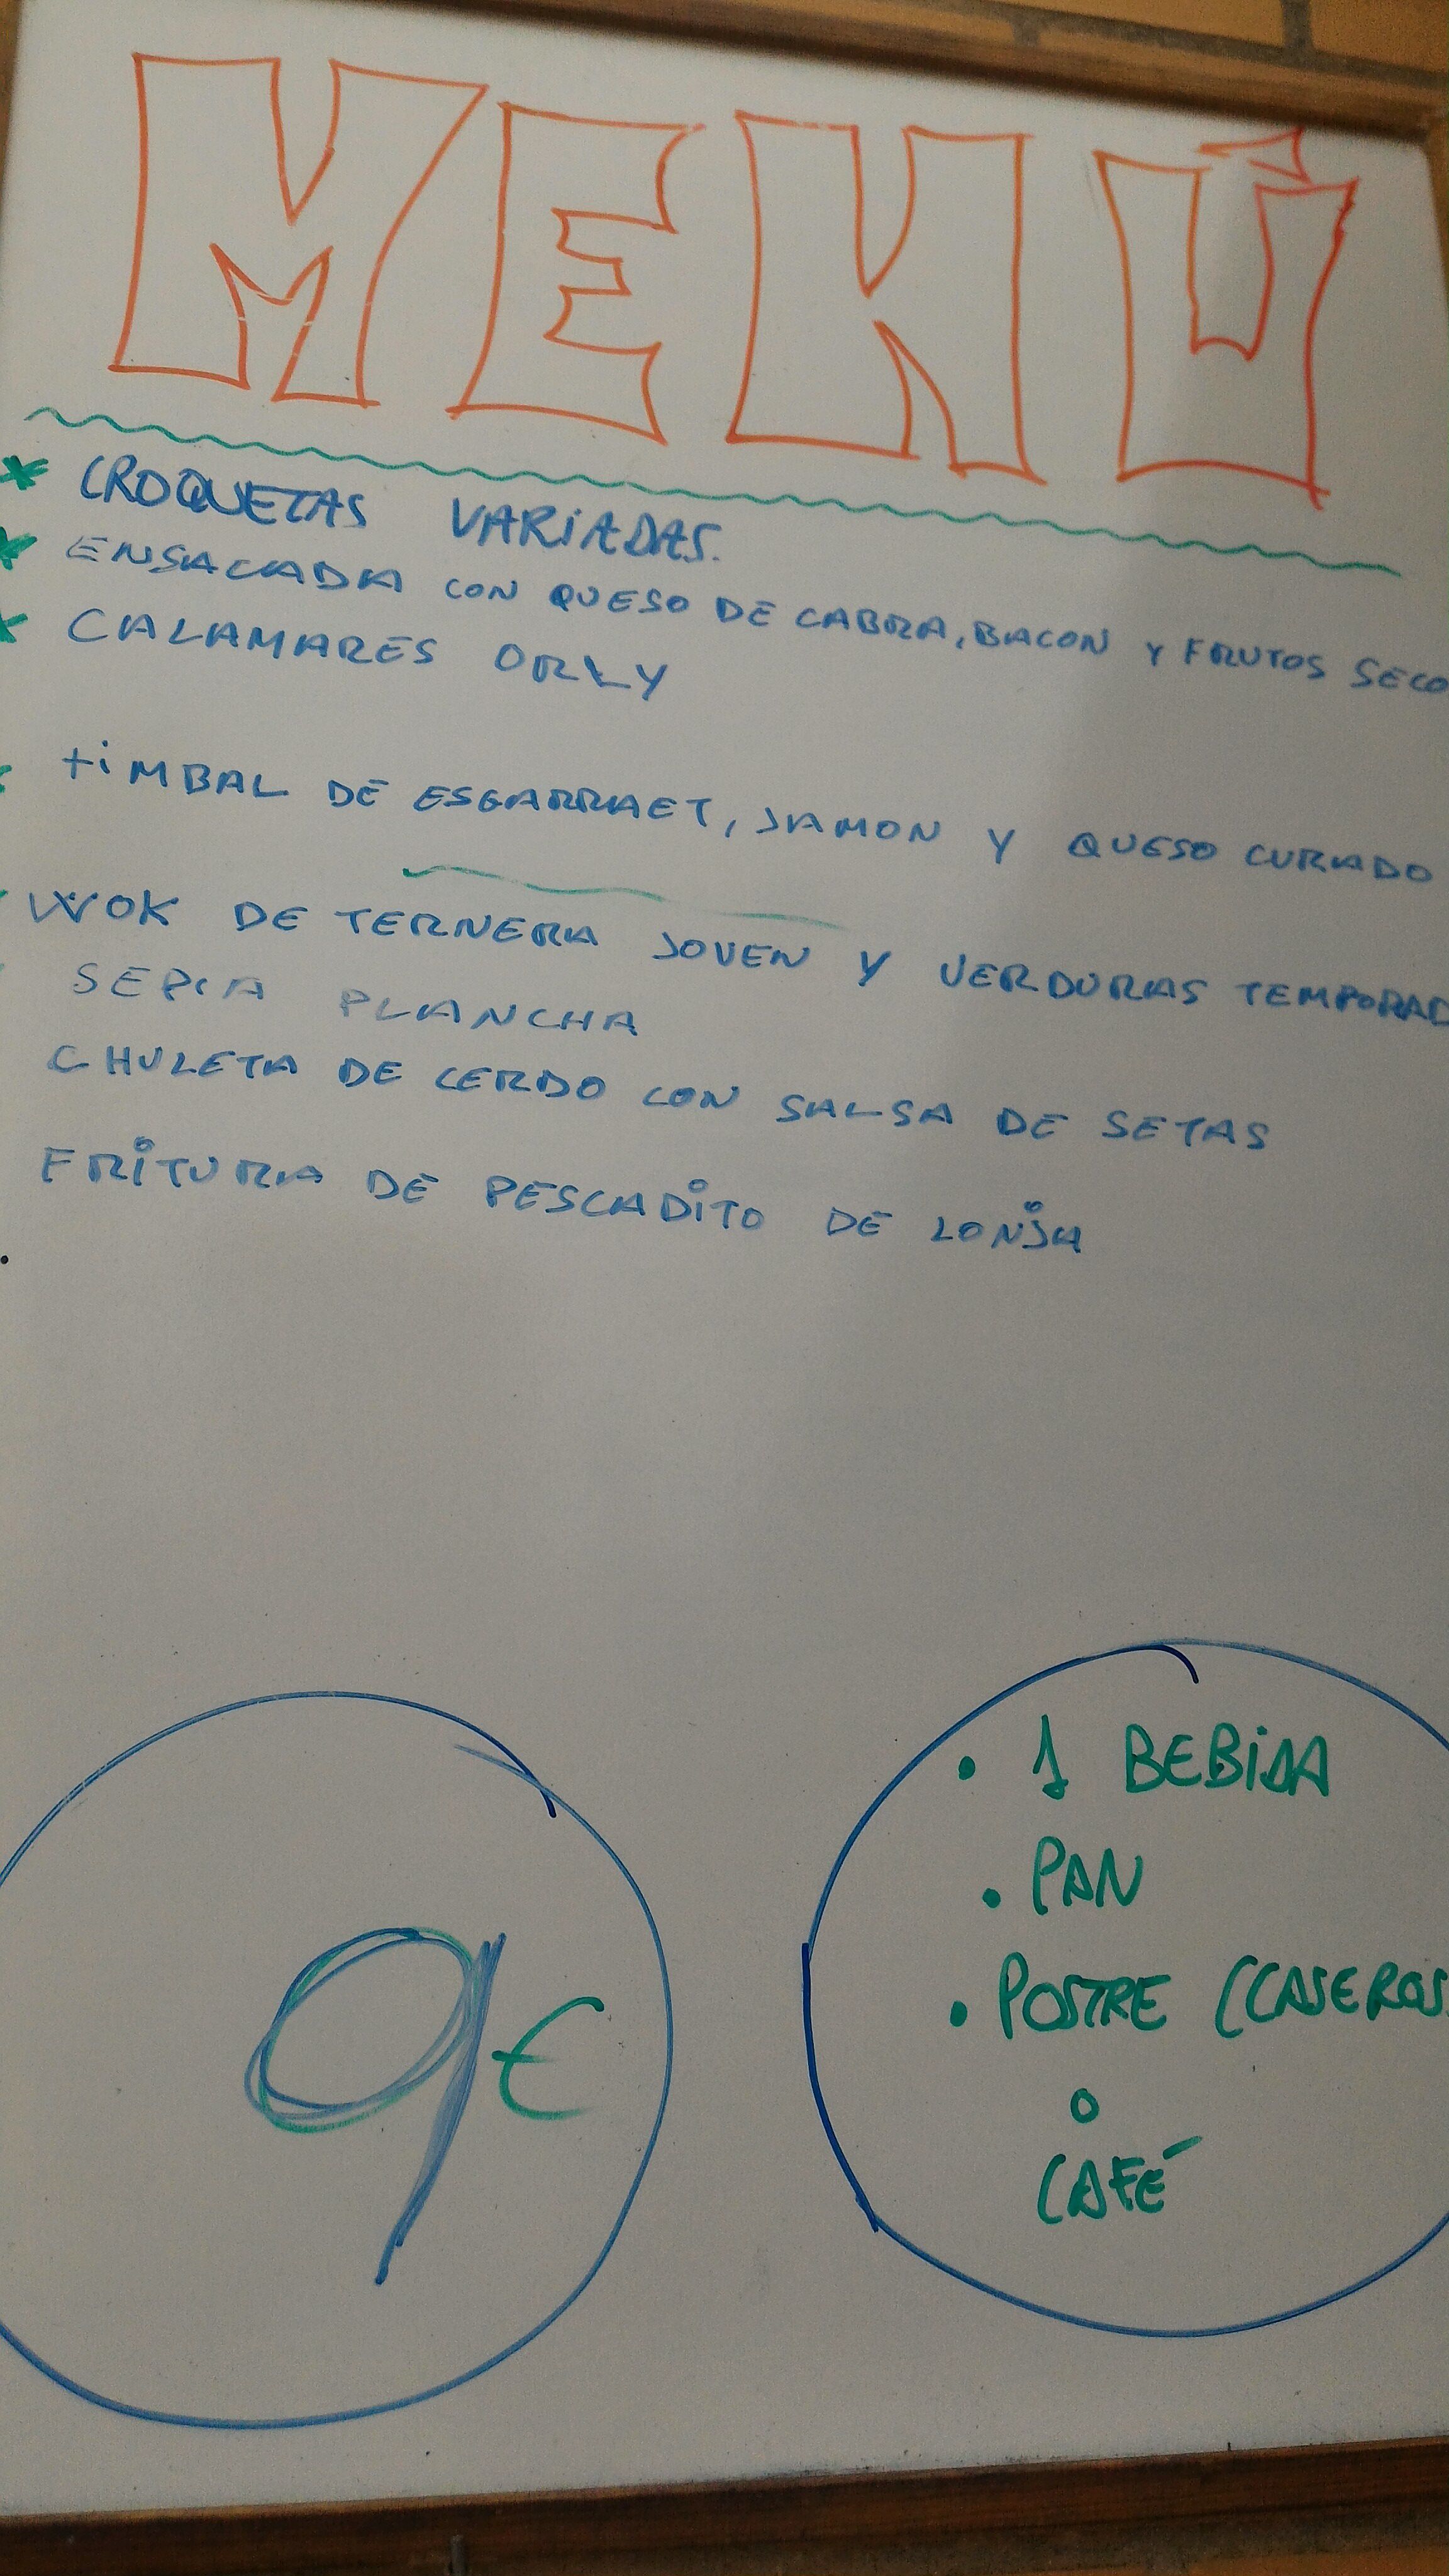 MENÚ
* CROQUETAS VARIADAS.
* ENSALADA CON QUESO DE CABRA, BACON Y FRUTOS SECO
* CALAMARES ORLY
TiMBAL DE ESGARRAET, JAMON Y QUESO CURADO
WOK DE TERNERA JOVEN Y VERDURAS TEMPORAD
SEPIA PLANCHA
CHULETA DE CERDO CON SALSA DE SETAS
FRITURA DE PESCADITO DE LONJA
9€
• 1 BEBIDA
• PAN
• POSTRE (CASEROS
o
CAFÉ